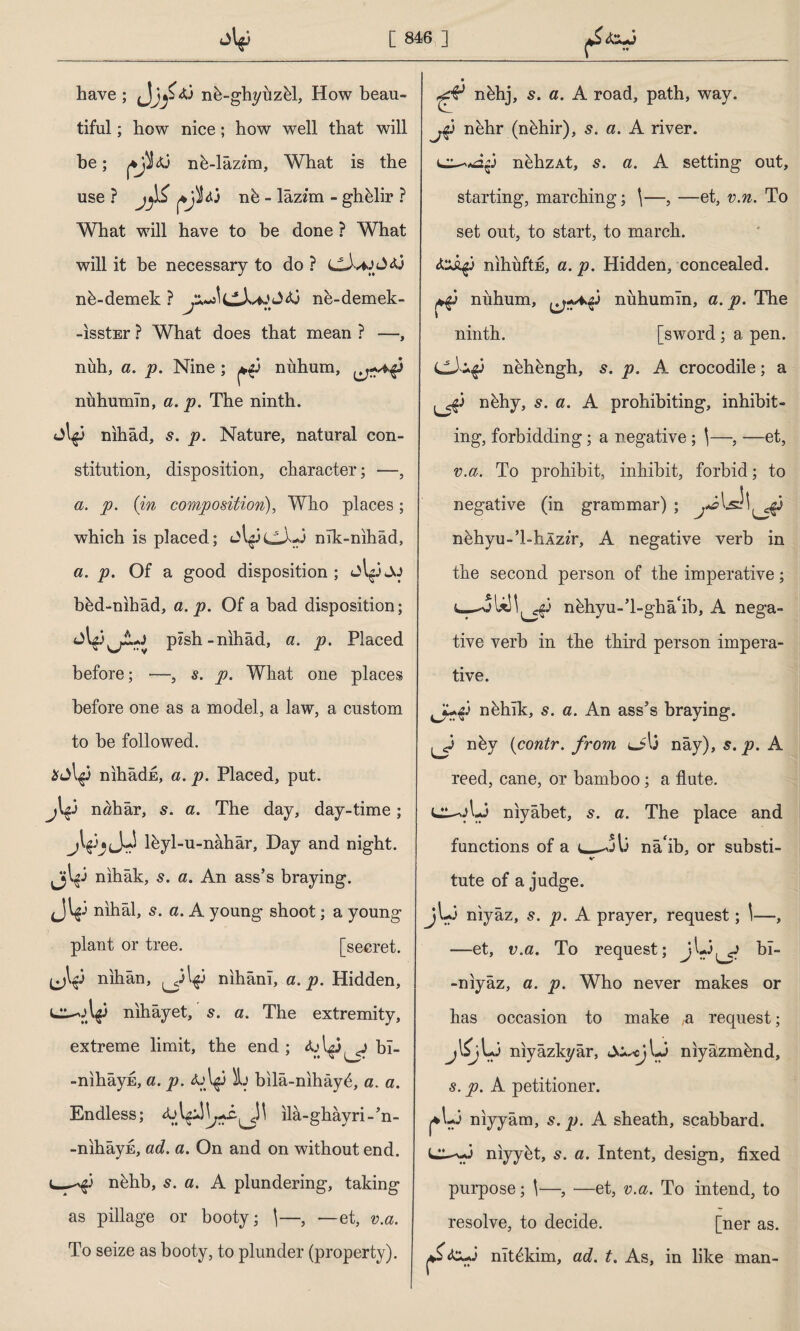 نهاد [ 846 ] نیته‌کم
have ; نه‌گوزل nè-ghyùzèl, How beau-
tiful ; how nice ; how well that will
be ; نه‌لازم nè-lāzim, What is the
use ? نه لازم کلیر nè - lāzim - ghèlir ?
What will have to be done ? What
will it be necessary to do ? نه‌دیمك
nè-demek ? نه‌دیمك‌ایستر nè-demek-
-ìsstER ? What does that mean ? —,
nùh, a. p. Nine ; نهم nùhum, نهمین
nùhumīn, a. p. The ninth.
نهاد nìhād, s. p. Nature, natural con-
stitution, disposition, character ; —,
a. p. (in composition), Who places ;
which is placed ; نیك‌نهاد nīk-nìhād,
a. p. Of a good disposition ; بدنهاد
bèd-nìhād, a. p. Of a bad disposition ;
پیش‌نهاد pīsh-nìhād, a. p. Placed
before ; —, s. p. What one places
before one as a model, a law, a custom
to be followed.
نهاده nìhādE, a. p. Placed, put.
نهار nahār, s. a. The day, day-time ;
لیل‌ونهار lèyl-u-nahār, Day and night.
نهاق nìhāk, s. a. An ass's braying.
نهال nìhāl, s. a. A young shoot ; a young
plant or tree. [secret.
نهان nìhān, نهانی nìhānī, a. p. Hidden,
نهایت nìhāyet, s. a. The extremity,
extreme limit, the end ; بی‌نهایه bī-
-nìhāyE, a. p. بلا نهایه bìlā-nìhāyé, a. a.
Endless ; الی‌غیرالنهایه ìlà-ghàyri-'n-
-nìhāyE, ad. a. On and on without end.
نهب nèhb, s. a. A plundering, taking
as pillage or booty ; ا—, —et, v.a.
To seize as booty, to plunder (property).
نهج nèhj, s. a. A road, path, way.
نهر nèhr (nèhir), s. a. A river.
نهضت nèhzAt, s. a. A setting out,
starting, marching ; ا—, —et, v.n. To
set out, to start, to march.
نهفته nìhùftE, a. p. Hidden, concealed.
نهم nùhum, نهمین nùhumīn, a. p. The
ninth. [sword ; a pen.
نهنك nèhèngh, s. p. A crocodile ; a
نهی nèhy, s. a. A prohibiting, inhibit-
ing, forbidding ; a negative ; ا—, —et,
v.a. To prohibit, inhibit, forbid ; to
negative (in grammar) ; نهی‌الحاضر
nèhyu-'l-hĀzir, A negative verb in
the second person of the imperative ;
نهی‌الغائب nèhyu-'l-ghā'ib, A nega-
tive verb in the third person impera-
tive.
نهیق nèhīk, s. a. An ass's braying.
نی nèy (contr. from نای nāy), s. p. A
reed, cane, or bamboo ; a flute.
نیابت nìyābet, s. a. The place and
functions of a نائب nā'ib, or substi-
tute of a judge.
نیاز nìyāz, s. p. A prayer, request ; ا—,
—et, v.a. To request ; بی‌نیاز bī-
-nìyāz, a. p. Who never makes or
has occasion to make a request ;
نیازکار nìyāzkyār, نیازمند nìyāzmènd,
s. p. A petitioner.
نیام nìyyām, s. p. A sheath, scabbard.
نیت nìyyèt, s. a. Intent, design, fixed
purpose ; ا—, —et, v.a. To intend, to
resolve, to decide. [ner as.
نیته‌کم nītékim, ad. t. As, in like man-